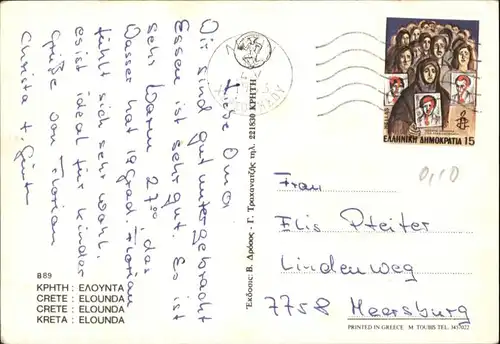 Liebe Oma!
Wir sind gut untergebracht
Essen ist sehr gut. Es ist
sehr Warm 27°°, das
Wasser hat 19 grad. Florian
fühlt sich sehr wohl.
es ist ideal für kinder
Grüße von Florian
Christa + Günter
B 89
ΚΡΗΤΗ : ΕΛΟΥΝΤΑ
CRETE : ELOUNDA
CRETE : ELOUNDA
KRETA : ELOUNDA
Έκδοσις: Β. Δρόσος - Γ. Τροχανατζής τηλ. 221830 ΚΡΗΤΗ
ΕΛΛΗΝΙΚΗ ΔΗΜΟΚΡΑΤΙΑ 15
0,10
Frau
Elis Pfeifer
Lindenweg
7758 Meersburg
PRINTED IN GREECE M. TOUBIS TEL. 3417022